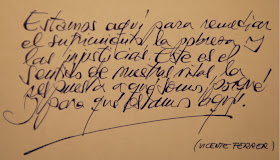 Estamos aquí para remediar
el sufrimiento, la pobreza y
las injusticias. Éste es el
sentido de nuestras vidas, la
respuesta a qué somos, porqué
y para qué estamos aquí.
(VICENTE FERRER)